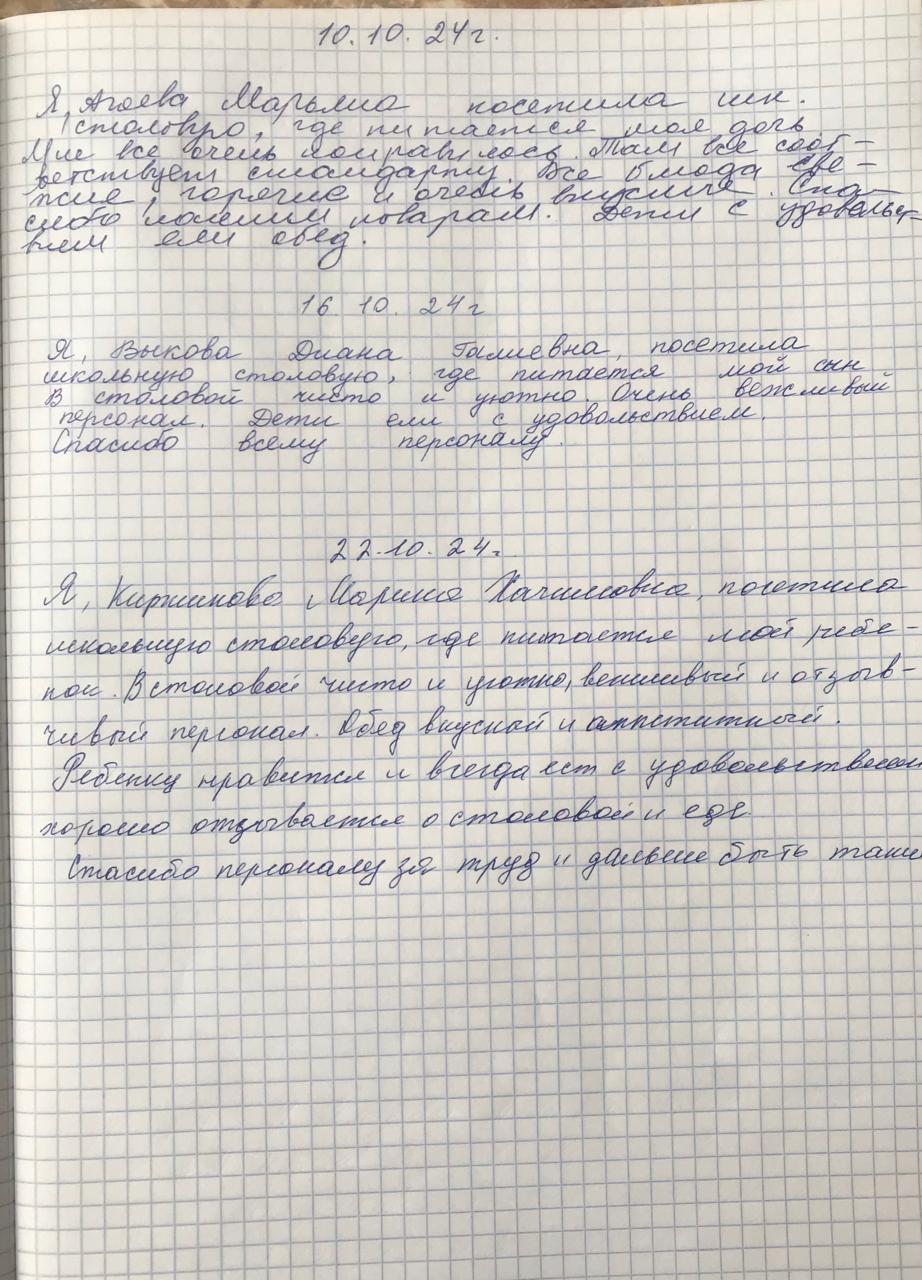 10.10.24г.
Я, Агоева Марьяна посетила шк.
столовую, где питается моя дочь
Мне все очень понравилось. Там все соот-
ветствует стандарту. Все блюда све-
жие, горячие и очень вкусные. Спа-
сибо нашим поварам. Дети с удовольст-
вием ели обед.
16.10.24г
Я, Выкова Диана Галиевна, посетила
школьную столовую, где питается мой сын
В столовой чисто и уютно. Очень вежливый
персонал. Дети ели с удовольствием.
Спасибо всему персоналу.
22.10.24г.
Я, Киржинова Марина Хачимовна, посетила
школьную столовую, где питается мой ребе-
нок. В столовой чисто и уютно, вежливый и отзыв-
чивый персонал. Обед вкусный и аппетитный.
Ребенку нравится и всегда ест с удовольствием
хорошо отзывается о столовой и еде.
Спасибо персоналу за труд и дальше быть таки